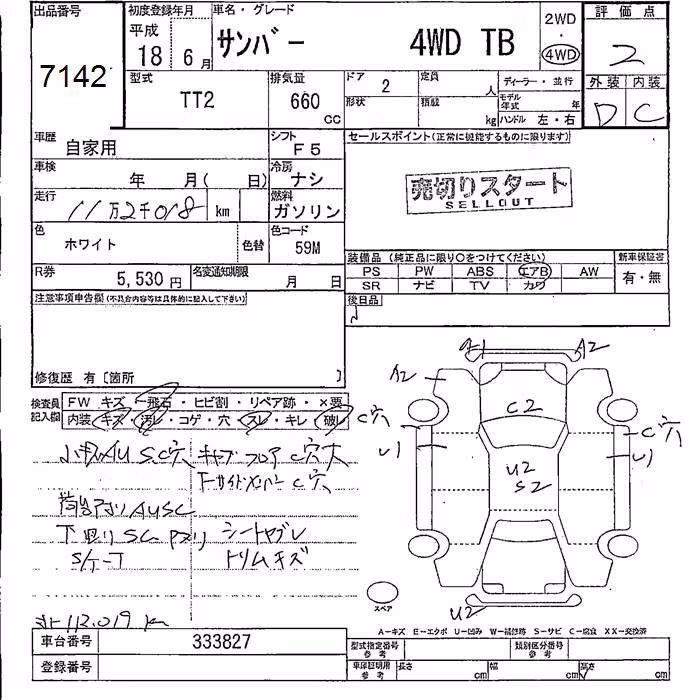 出品番号
7142
初度登録年月
平成
18年6月
車名・グレード
サンバー 4WD TB
2WD
・
4WD
評価点
2
外装 内装
D C
型式
TT2
排気量
660
cc
ドア 2
定員 人
形状
積載 kg
ディーラー・並行
モデル年式 年
ハンドル 左・右
車歴
自家用
シフト
F5
車検
年 月( 日)
冷房
ナシ
走行
11万2千018 km
燃料
ガソリン
色
ホワイト
色替
色コード
59M
R券
5,530円
名変通知期限
月 日
セールスポイント(正常に機能するものに限ります)
売切りスタート
SELLOUT
装備品(純正品に限り○をつけてください)
PS PW ABS エアB AW
SR ナビ TV カワ
新車保証書
有・無
後日品
注意事項申告欄(不具合内容等は具体的に記入して下さい)
修復歴 有〔箇所 〕
検査員記入欄
FW キズ・飛石・ヒビ割・リペア跡・×要
内装 キズ・汚レ・コゲ・穴・スレ・キレ・破レ
C穴
AU SC穴
キャブフロア C穴大
下サイドメンバー C穴
AUSC
下 SC
シートヤブレ
トリムキズ
112,019 k
A1
A2
A2
C2
U1
C穴
U1
U2
S2
U2
スペア
A−キズ E−エクボ U−凹み W−補修跡 S−サビ C−腐食 XX−交換済
車台番号
333827
登録番号
型式指定番号
参考
類別区分番号
参考
車庫証明用
参考
長さ cm
幅 cm
高さ cm